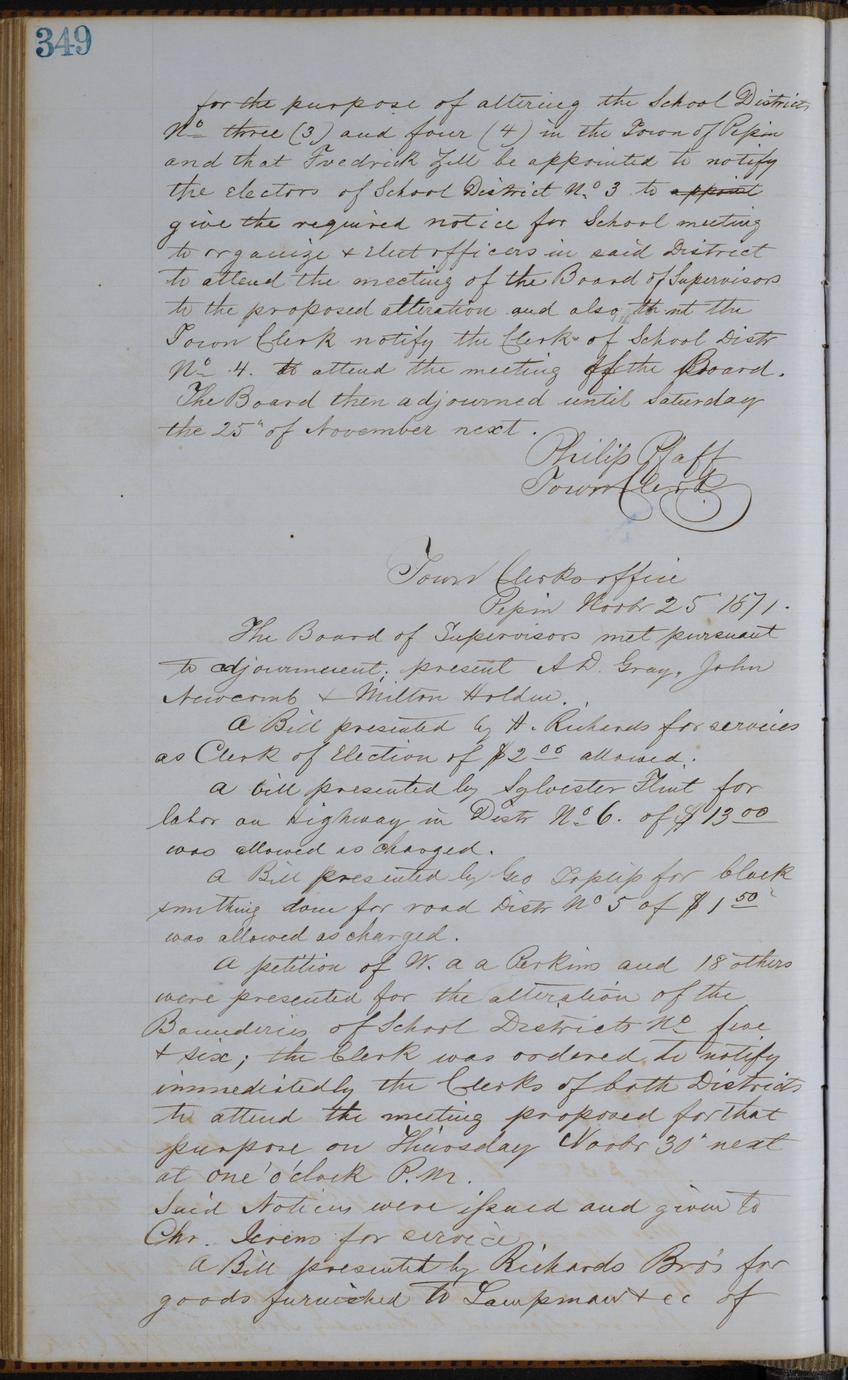 349
for the purpose of altering the School Districts
No three (3) and four (4) in the Town of Pepin
and that Fredrick Zill be appointed to notify
the electors of School District No 3 to appoint
give the required notice for School meeting
to organize & Elect officers in said District
to attend the meeting of the Board of Supervisors
to the proposed alteration and also that the
Town Clerk notify the Clerk of School Distr
No 4. to attend the meeting of the Board.
The Board then adjourned until Saturday
the 25" of November next.
Philip Pfaff
Town Clerk
Town Clerks office
Pepin Novbr 25 1871.
The Board of Supervisors met pursuant
to adjournment; present A D. Gray, John
Newcomb & Milton Holden.
A Bill presented by H. Richards for services
as Clerk of Election of $2 00 allowed.
A bill presented by Sylvester Flint for
labor on Highway in Distr No 6. of $13 00
was allowed as charged.
A Bill presented by Geo for black
smithing done for road Distr No 5 of $1 50
was allowed as charged.
A petition of W. a a Perkins and 18 others
were presented for the alteration of the
Bounderies of School Districts No five
& six; the Clerk was ordered to notify
immediatedly the Clerks of both Districts
to attend the meeting proposed for that
purpose on Thursday Novbr 30" next
at one o'clock P.M.
Said Notices were issued and given to
Chr. for service.
A Bill presented by Richards Bro's for
goods furnished to &cc of